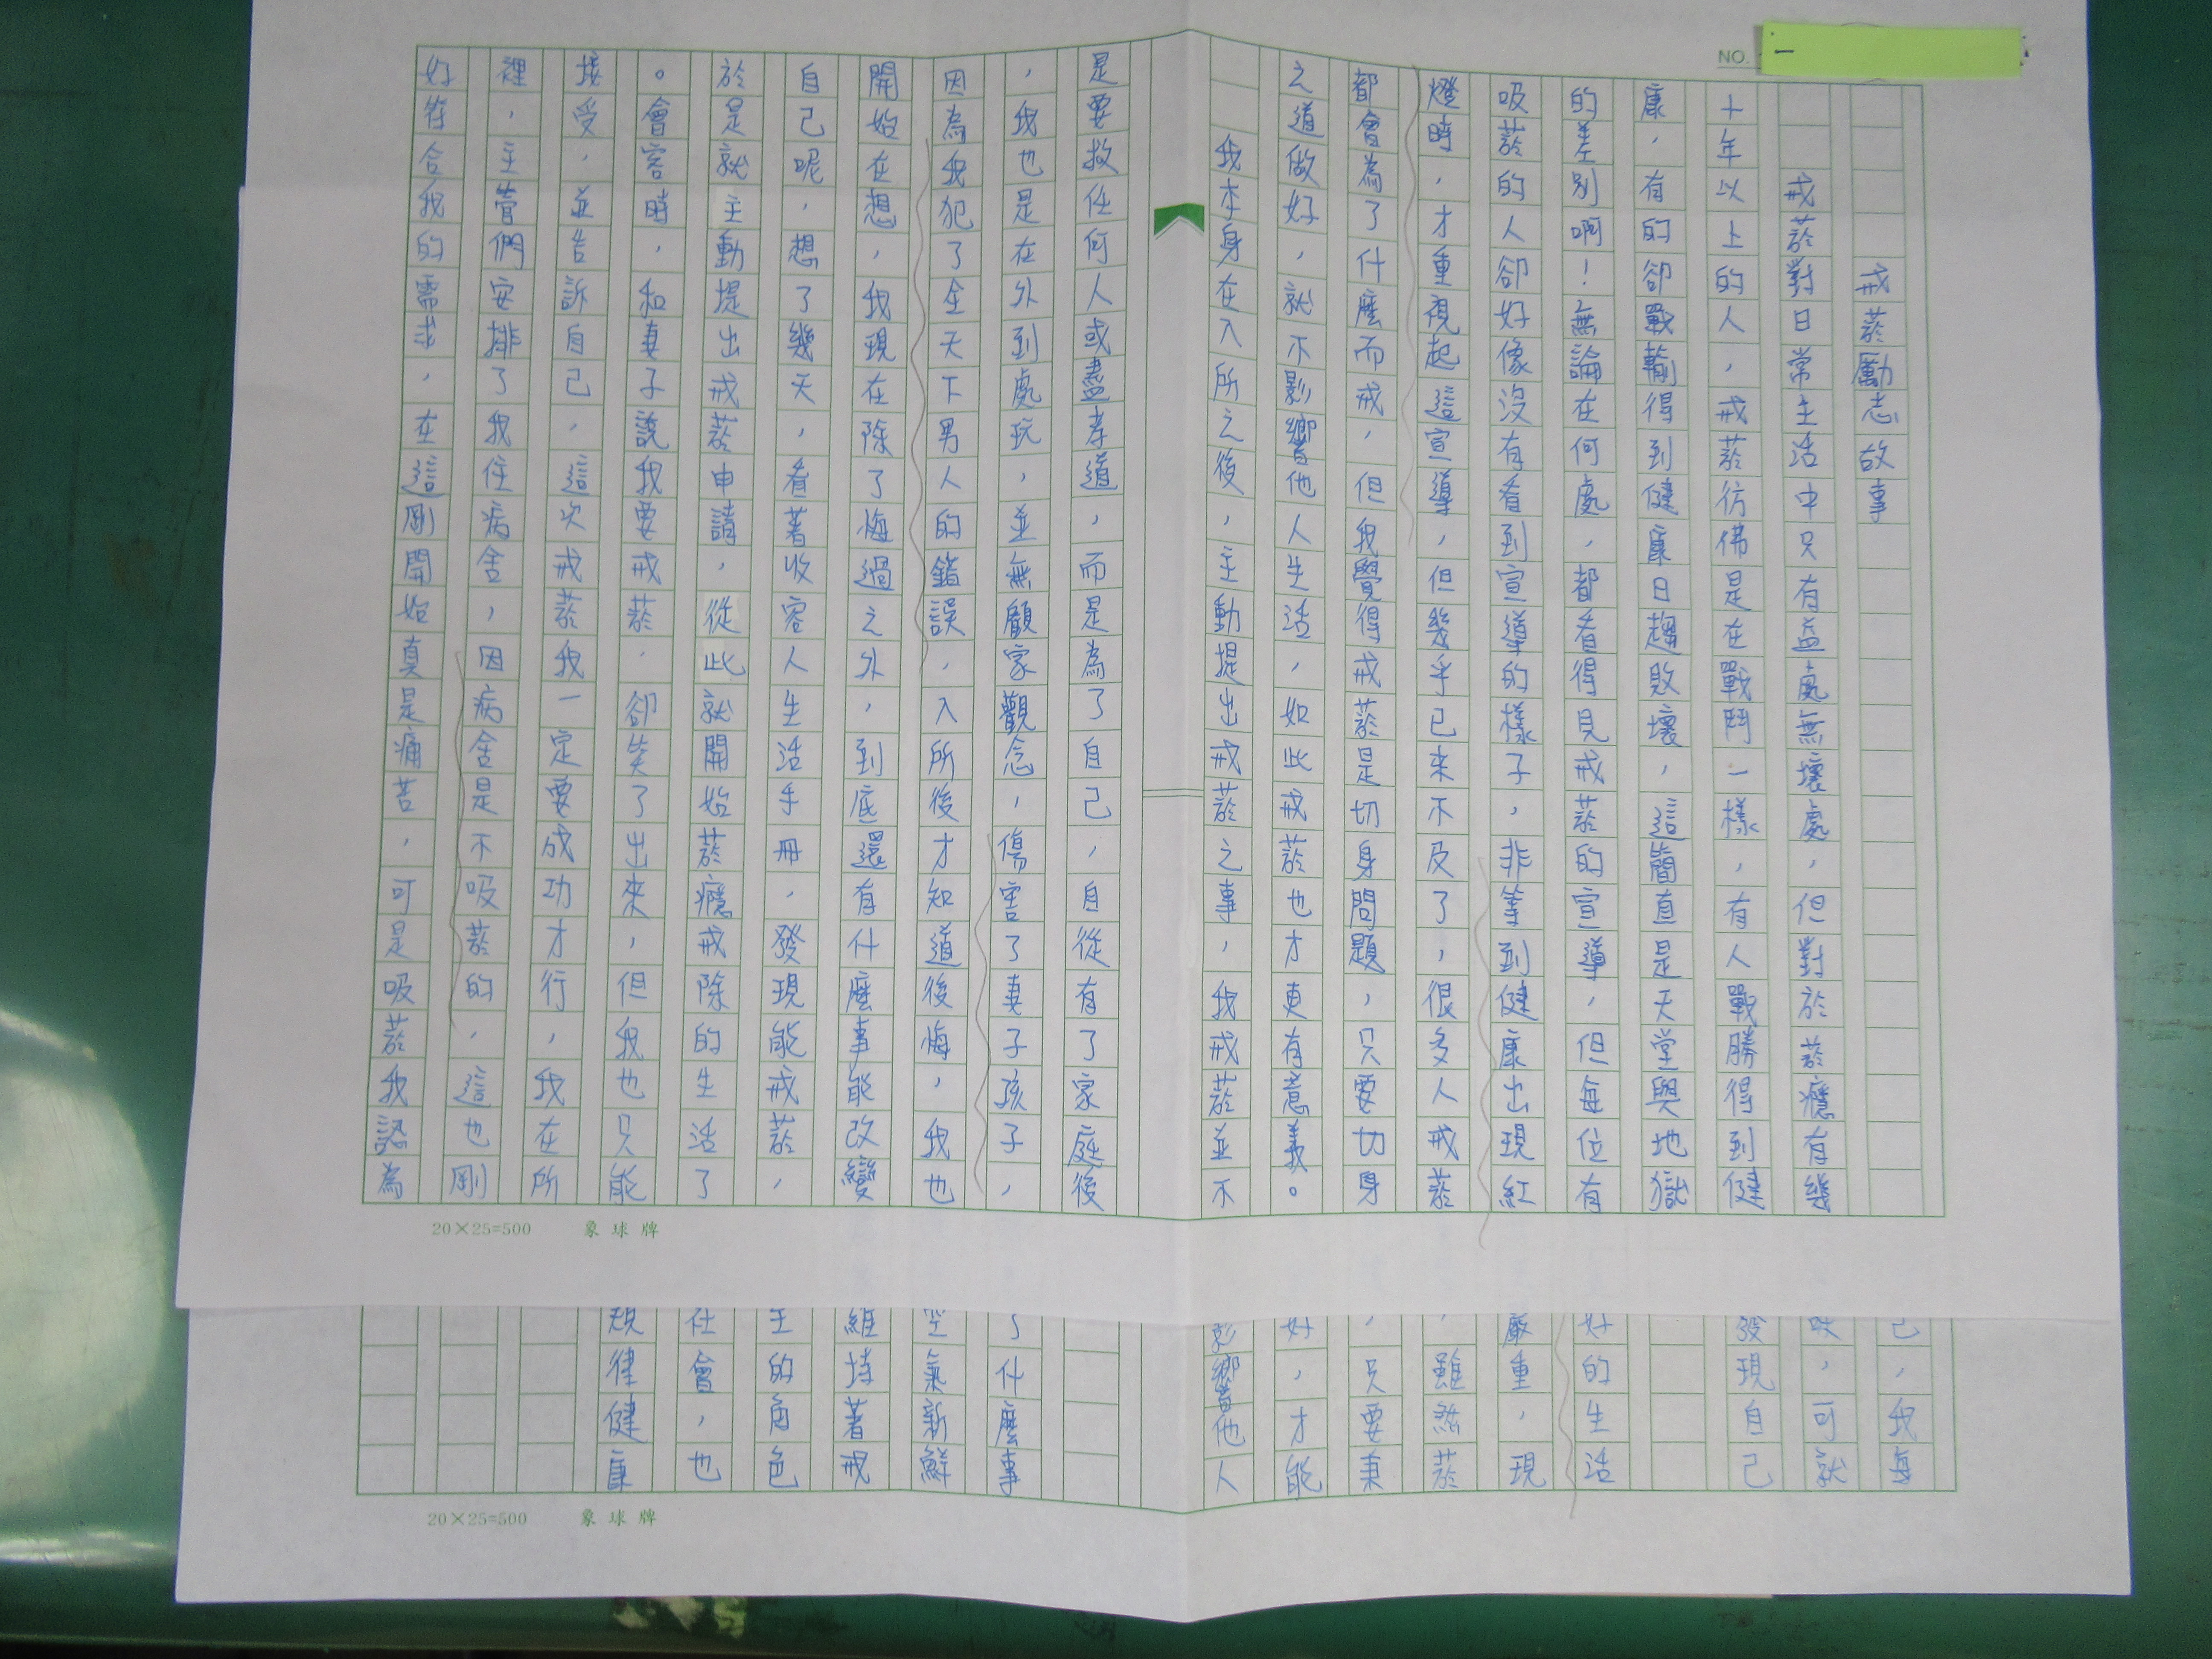 NO.
一
戒菸勵志故事
戒菸對日常生活中只有益處無壞處，但對於菸癮有幾
十年以上的人，戒菸彷彿是在戰鬥一樣，有人戰勝得到健
康，有的卻戰輸得到健康日趨敗壞，這簡直是天堂與地獄
的差別啊！無論在何處，都看得見戒菸的宣導，但每位有
吸菸的人卻好像沒有看到宣導的樣子，非等到健康出現紅
燈時，才重視起這宣導，但幾乎已來不及了，很多人戒菸
都會為了什麼而戒，但我覺得戒菸是切身問題，只要切身
之道做好，就不影響他人生活，如此戒菸也才更有意義。
我本身在入所之後，主動提出戒菸之事，我戒菸並不
是要救任何人或盡孝道，而是為了自己，自從有了家庭後
，我也是在外到處玩，並無顧家觀念，傷害了妻子孩子，
因為我犯了全天下男人的錯誤，入所後才知道後悔，我也
開始在想，我現在除了悔過之外，到底還有什麼事能改變
自己呢，想了幾天，看著收容人生活手冊，發現能戒菸，
於是就主動提出戒菸申請，從此就開始菸癮戒除的生活了
。會客時，和妻子說我要戒菸，卻笑了出來，但我也只能
接受，並告訴自己，這次戒菸我一定要成功才行，我在所
裡，主管們安排了我住病舍，因病舍是不吸菸的，這也剛
好符合我的需求，在這剛開始真是痛苦，可是吸菸我認為
20×25=500 象球牌
己，我每
，可就
發現自己
好的生活
嚴重，現
，雖然菸
，只要兼
好，才能
影響他人
了什麼事
空氣新鮮
維持著戒
主的角色
社會，也
規律健康
20×25=500 象球牌